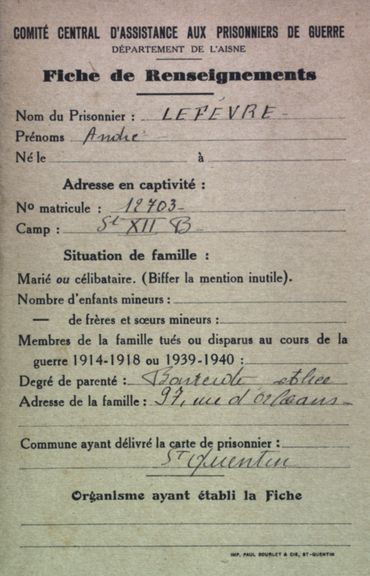 COMITÉ CENTRAL D'ASSISTANCE AUX PRISONNIERS DE GUERRE
DÉPARTEMENT DE L'AISNE
Fiche de Renseignements
Nom du Prisonnier : LEFÉVRE
Prénoms André
Né le à
Adresse en captivité :
No matricule : 12703
Camp : St XII B
Situation de famille :
Marié ou célibataire. (Biffer la mention inutile).
Nombre d'enfants mineurs :
— de frères et sœurs mineurs :
Membres de la famille tués ou disparus au cours de la
guerre 1914-1918 ou 1939-1940 :
Degré de parenté :
Adresse de la famille : 97, rue d'Orléans
Commune ayant délivré la carte de prisonnier :
St Quentin
Organisme ayant établi la Fiche
IMP. PAUL BOURLET & CIE, ST-QUENTIN